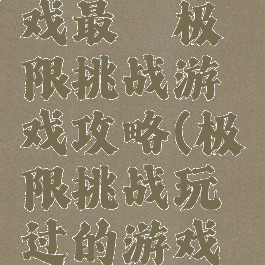 戏最 极
限挑战游
戏攻略(极
限挑战玩
过的游戏